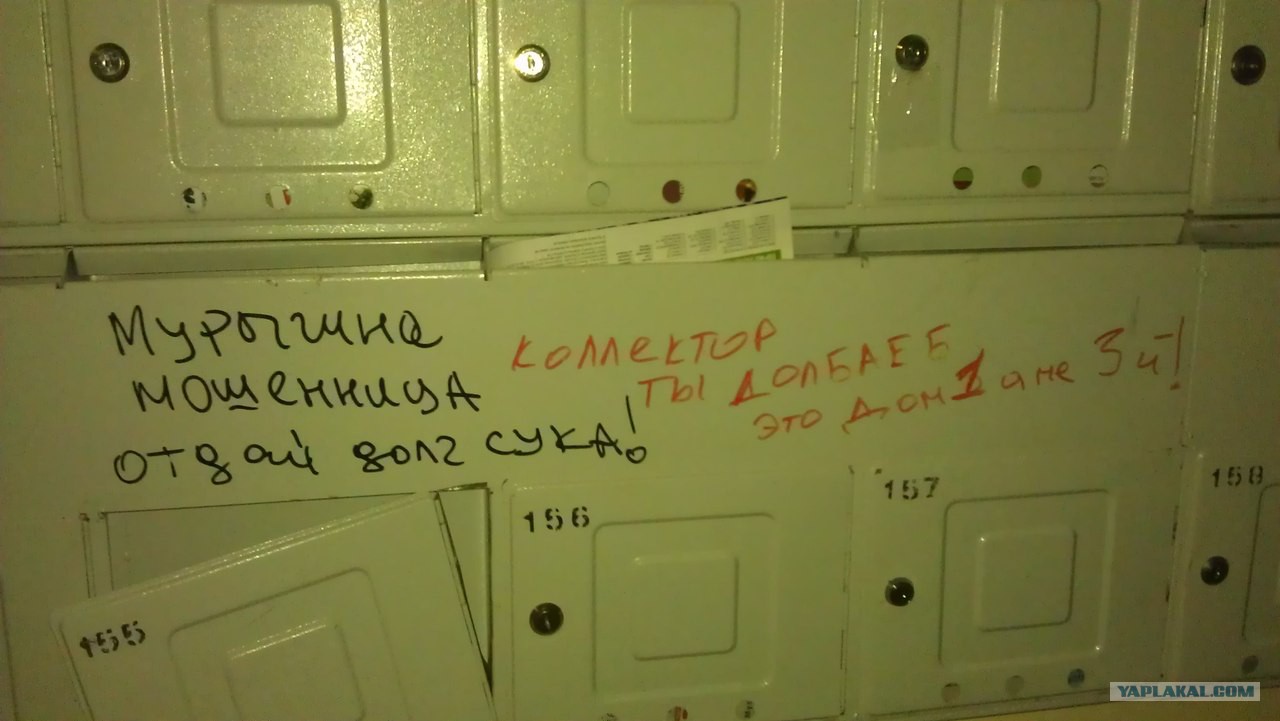 Мурыгина
мошенница
отдай долг сука!
коллектор
ты долбаеб
это дом 1 а не 3й!
155
156
157
158
YAPLAKAL.COM